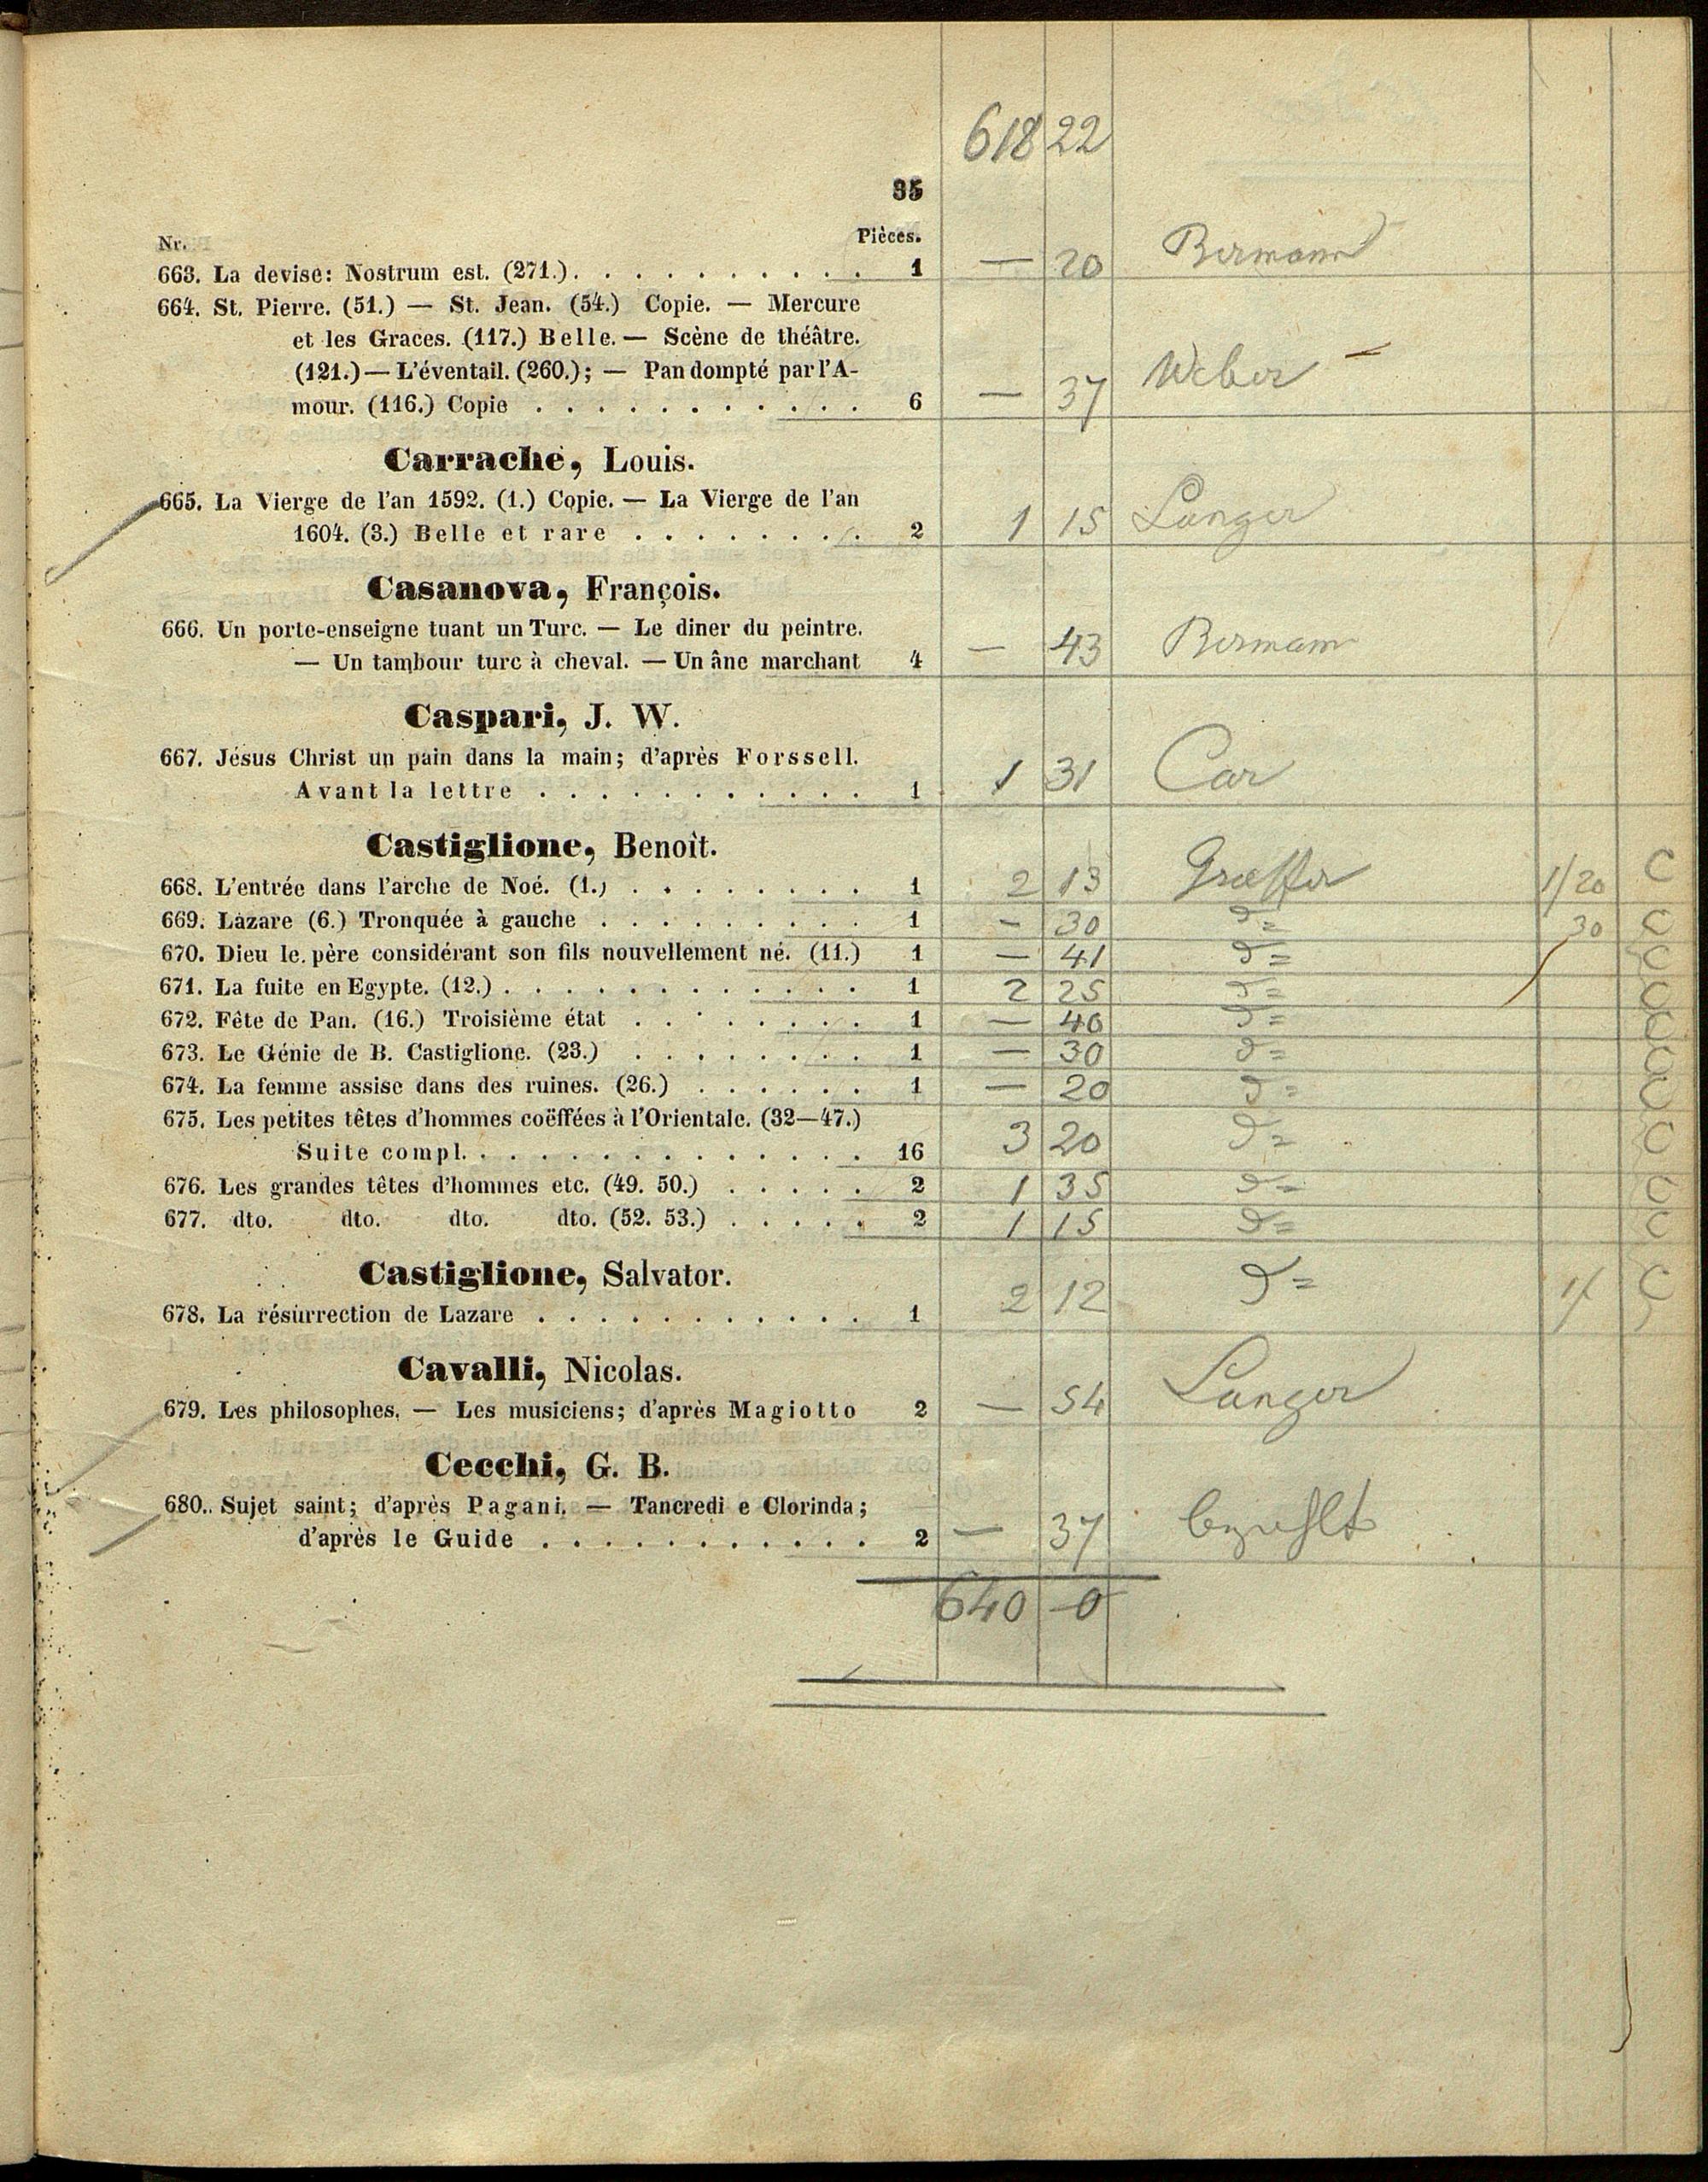 618 22
35
Nr. Pièces.
663. La devise: Nostrum est. (271.) . . . . . . . . . . 1 — 20 Bermann
664. St. Pierre. (51.) — St. Jean. (54.) Copie. — Mercure
et les Graces. (117.) Belle. — Scène de théâtre.
(121.) — L'éventail. (260.); — Pan dompté par l'A-
mour. (116.) Copie . . . . . . . . . . . 6 — 37 Weber —
Carrache, Louis.
665. La Vierge de l'an 1592. (1.) Copie. — La Vierge de l'an
1604. (3.) Belle et rare . . . . . . . . 2 1 15 Langer
Casanova, François.
666. Un porte-enseigne tuant un Turc. — Le diner du peintre.
— Un tambour turc à cheval. — Un âne marchant 4 — 43 Bermann
Caspari, J. W.
667. Jésus Christ un pain dans la main; d'après Forssell.
Avant la lettre . . . . . . . . . . . 1 1 31 Car
Castiglione, Benoît.
668. L'entrée dans l'arche de Noé. (1.) . . . . . . . . 1 2 13 Graeffer 1/20 C
669. Lazare (6.) Tronquée à gauche . . . . . . . . . 1 — 30 d= 30 C
670. Dieu le père considérant son fils nouvellement né. (11.) 1 — 41 d= C
671. La fuite en Egypte. (12.) . . . . . . . . . . . . 1 2 25 d= C
672. Fête de Pan. (16.) Troisième état . . . . . . . . 1 — 40 d= C
673. Le Génie de B. Castiglione. (23.) . . . . . . . . 1 — 30 d= C
674. La femme assise dans des ruines. (26.) . . . . . . 1 — 20 d= C
675. Les petites têtes d'hommes coëffées à l'Orientale. (32—47.)
Suite compl. . . . . . . . . . . . . . 16 3 20 d= C
676. Les grandes têtes d'hommes etc. (49. 50.) . . . . . 2 1 35 d= C
677. dto. dto. dto. dto. (52. 53.) . . . . . 2 1 15 d= C
Castiglione, Salvator.
678. La résurrection de Lazare . . . . . . . . . . . 1 2 12 d= 1/ C
Cavalli, Nicolas.
679. Les philosophes. — Les musiciens; d'après Magiotto 2 — 54 Langer
Cecchi, G. B.
680. Sujet saint; d'après Pagani. — Tancredi e Clorinda;
d'après le Guide . . . . . . . . . . . 2 — 37 bezahlt
640 —0